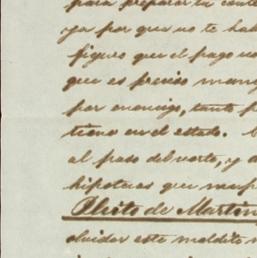 para preparar la cont
ya por que no te hab
figuro que el pago no
que es preciso man
por encargo, tanto p
tiene en el estado.
al paso del norte, y d
hipotecas que
Pleito de Martin
olvidar este maldito